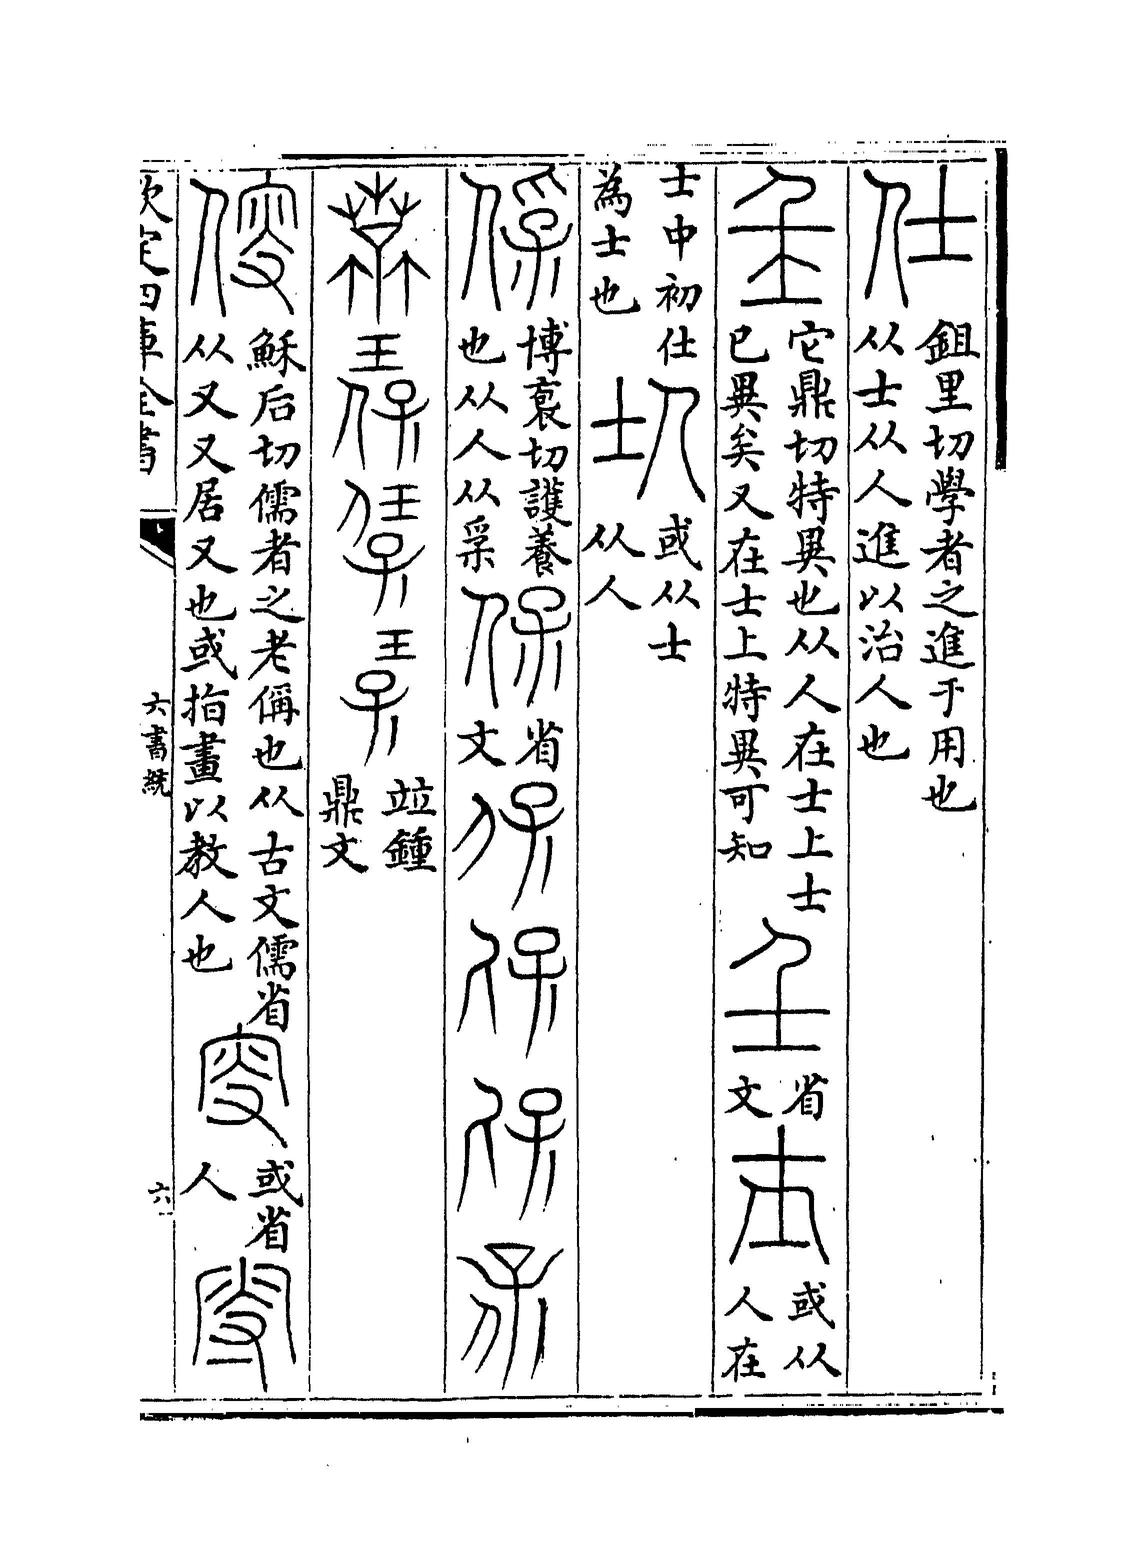 仕
鉏里切學者之進于用也
从士从人進以治人也
𡈼
它鼎切特異也从人在士上士
已異矣又在士上特異可知
𡈼
省
文
或从
人在
士中初仕
為士也
仕
或从士
从人
保
博裒切護養
也从人从𤓽
保
省
文
竝鍾
鼎文
傁
穌后切儒者之老偁也从古文儒省
从又又居又也或指畫以教人也
或省
人
欽定四庫全書
六書統
六